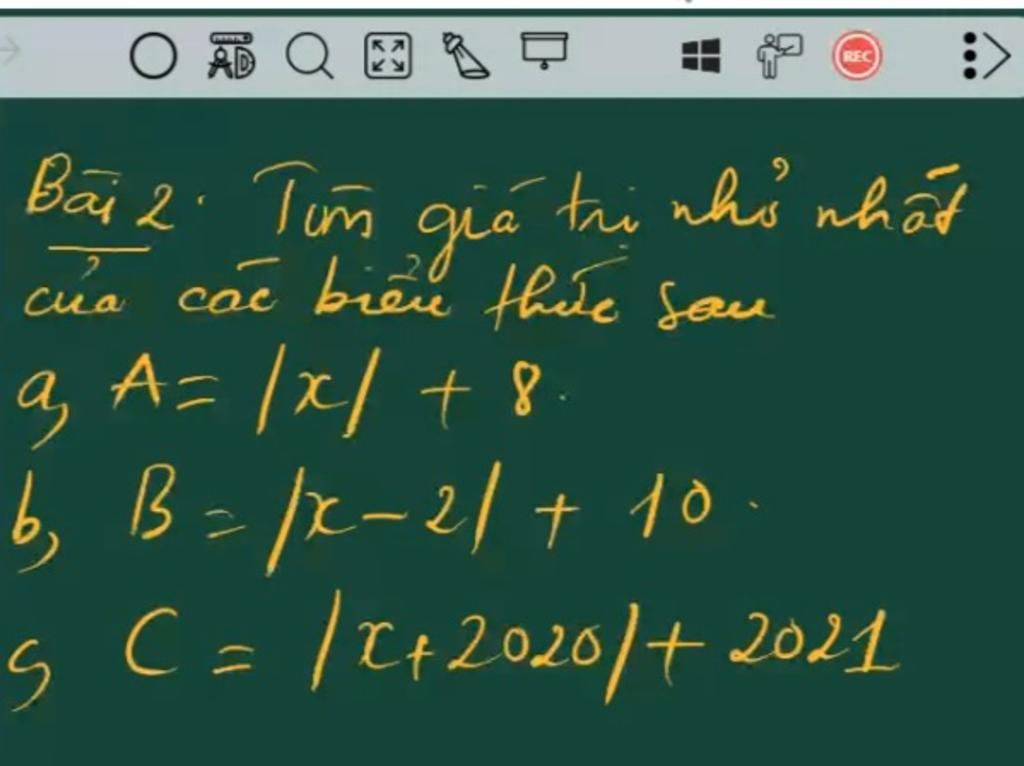 REC
Bài 2. Tìm giá trị nhỏ nhất
của các biểu thức sau
a, A = |x| + 8.
b, B = |x - 2| + 10.
c, C = |x + 2020| + 2021